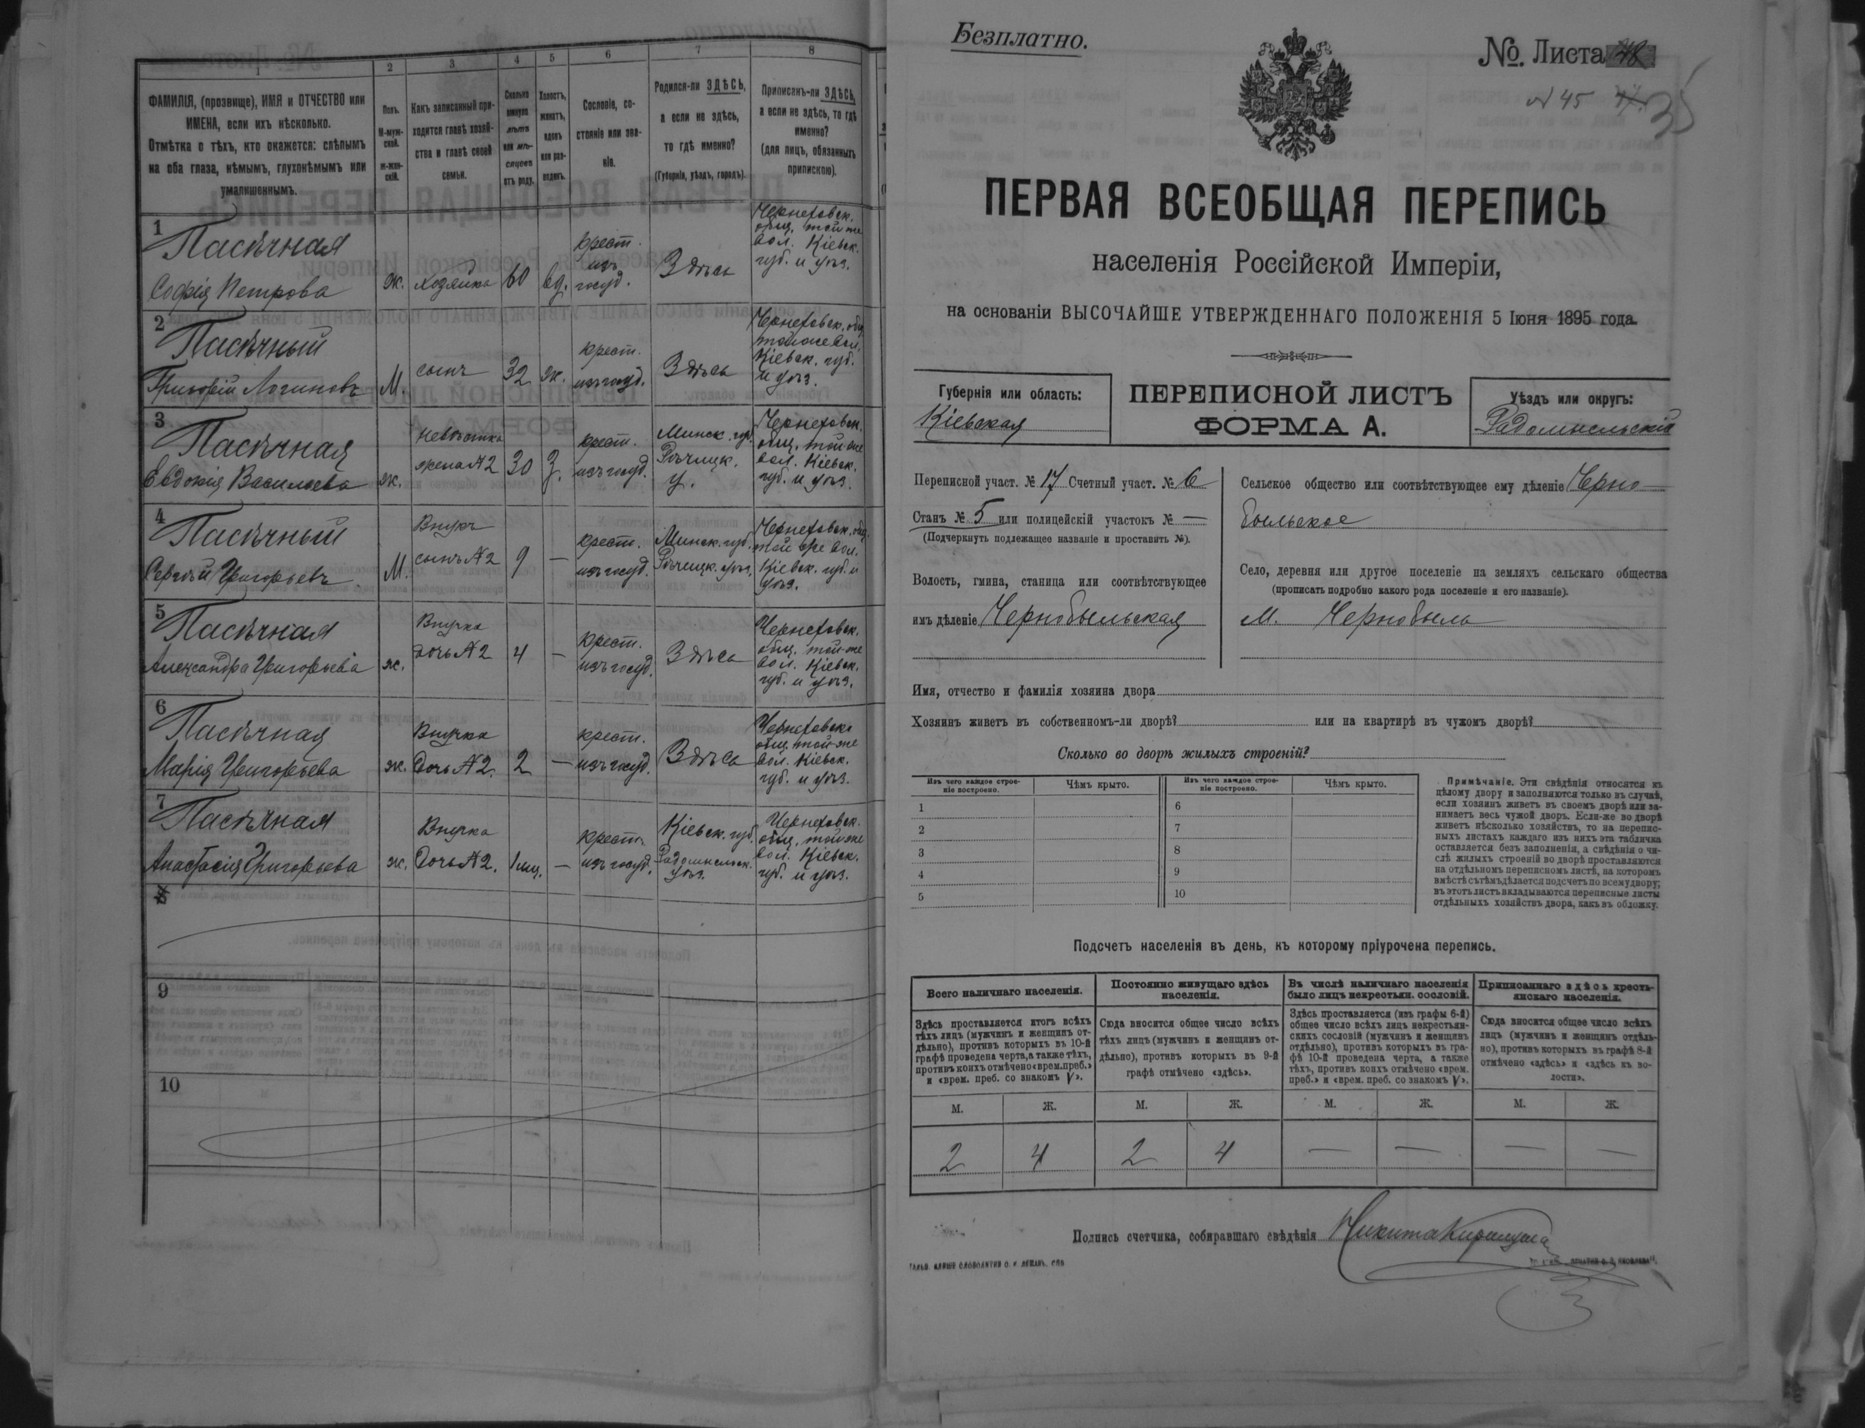 1
2
3
4
5
6
7
8
ФАМИЛІЯ, (прозвище), ИМЯ и ОТЧЕСТВО или
ИМЕНА, если ихъ нѣсколько.
Отмѣтка о тѣхъ, кто окажется: слѣпымъ
на оба глаза, нѣмымъ, глухонѣмымъ или
умалишеннымъ.
Полъ.
М-муж-
ской.
ж-жен-
скій.
Какъ записанный при-
ходится главѣ хозяй-
ства и главѣ своей
семьи.
Сколько
минуло
лѣтъ
или мѣ-
сяцевъ
отъ роду.
Холостъ,
женатъ,
вдовъ
или раз-
веденъ.
Сословіе, со-
стояніе или зва-
ніе.
Родился-ли ЗДѢСЬ,
а если не здѣсь,
то гдѣ именно?
(Губернія, уѣздъ, городъ).
Приписанъ-ли ЗДѢСЬ,
а если не здѣсь, то гдѣ
именно?
(для лицъ, обязанныхъ
припискою).
1
Пасѣчная
Софія Петрова
ж.
хозяйка
60
вд.
крест.
изъ
госуд.
Здѣсь
общ. той же
вол. Кіевск.
губ. и уѣз.
2
Пасѣчный
Григорій Логиновъ
М.
сынъ
32
ж.
крест.
изъ госуд.
Здѣсь
общ.
той же вол.
Кіевск. губ.
и уѣз.
3
Пасѣчная
Евдокія Василіева
ж.
невѣстка
жена №2
30
З.
крест.
изъ госуд.
Минск. губ.
Рѣчицк.
у.
общ. той же
вол. Кіевск.
губ. и уѣз.
4
Пасѣчный
Сергѣй Григорьевъ
М.
Внукъ
сынъ №2
9
—
крест.
изъ госуд.
Минск. губ.
Рѣчицк. уѣз.
общ.
той же вол.
Кіевск. губ. и
уѣз.
5
Пасѣчная
Александра Григорьева
ж.
Внучка
дочь №2
4
—
крест.
изъ госуд.
Здѣсь
общ. той-же
вол. Кіевск.
губ. и уѣз.
6
Пасѣчная
Марія Григорьева
ж.
Внучка
Дочь №2.
2
—
крест.
изъ госуд.
Здѣсь
общ. той-же
вол. Кіевск.
губ. и уѣз.
7
Пасѣчная
Анастасія Григорьева
ж.
Внучка
Дочь №2.
1 мц.
—
крест.
изъ госуд.
Кіевск. губ.
Радомысльск.
уѣз.
общ. той же
вол. Кіевск.
губ. и уѣз.
8
9
10
Безплатно.
№. Листа 48
№ 45
35
ПЕРВАЯ ВСЕОБЩАЯ ПЕРЕПИСЬ
населенія Россійской Имперіи,
на основаніи ВЫСОЧАЙШЕ УТВЕРЖДЕННАГО ПОЛОЖЕНІЯ 5 Іюня 1895 года.
Губернія или область:
Кіевская
ПЕРЕПИСНОЙ ЛИСТЪ
ФОРМА А.
Уѣздъ или округъ:
Радомысльскій
Переписной участ. № 17 Счетный участ. № 6
Станъ № 5 или полицейскій участокъ № —
(Подчеркнуть подлежащее названіе и проставить №).
Волость, гмина, станица или соотвѣтствующее
имъ дѣленіе Чернобыльская
Сельское общество или соотвѣтствующее ему дѣленіе Черно-
быльское
Село, деревня или другое поселеніе на земляхъ сельскаго общества
(прописать подробно какого рода поселеніе и его названіе).
М. Чернобыль
Имя, отчество и фамилія хозяина двора
Хозяинъ живетъ въ собственномъ-ли дворѣ? или на квартирѣ въ чужомъ дворѣ?
Сколько во дворѣ жилыхъ строеній?
Изъ чего каждое строе-
ніе построено.
Чѣмъ крыто.
Изъ чего каждое строе-
ніе построено.
Чѣмъ крыто.
1
2
3
4
5
6
7
8
9
10
Примѣчаніе. Эти свѣдѣнія относятся къ
цѣлому двору и заполняются только въ случаѣ,
если хозяинъ живетъ въ своемъ дворѣ или за-
нимаетъ весь чужой дворъ. Если-же во дворѣ
живетъ нѣсколько хозяйствъ, то на перепис-
ныхъ листахъ каждаго изъ нихъ эта табличка
оставляется безъ заполненія, а свѣдѣнія о чи-
слѣ жилыхъ строеній во дворѣ проставляются
на отдѣльномъ переписномъ листѣ, на которомъ
вмѣстѣ съ тѣмъ дѣлается подсчетъ по всему двору;
въ этотъ листъ вкладываются переписные листы
отдѣльныхъ хозяйствъ двора, какъ въ обложку.
Подсчетъ населенія въ день, къ которому пріурочена перепись.
Всего наличнаго населенія.
Постоянно живущаго здѣсь
населенія.
Въ числѣ наличнаго населенія
было лицъ некрестьян. сословій.
Приписаннаго здѣсь кресть-
янскаго населенія.
Здѣсь проставляется итогъ всѣхъ
тѣхъ лицъ (мужчинъ и женщинъ от-
дѣльно), противъ которыхъ въ 10-й
графѣ проведена черта, а также тѣхъ,
противъ коихъ отмѣчено «врем. преб.»
и «врем. преб. со знакомъ V».
Сюда вносится общее число всѣхъ
тѣхъ лицъ (мужчинъ и женщинъ от-
дѣльно), противъ которыхъ въ 9-й
графѣ отмѣчено «здѣсь».
Здѣсь проставляется (изъ графы 6-й)
общее число всѣхъ лицъ некрестьян-
скихъ сословій (мужчинъ и женщинъ
отдѣльно), противъ которыхъ въ гра-
фѣ 10-й проведена черта, а также
тѣхъ, противъ коихъ отмѣчено «врем.
преб.» и «врем. преб. со знакомъ V».
Сюда вносится общее число всѣхъ
лицъ (мужчинъ и женщинъ отдѣль-
но), противъ которыхъ въ графѣ 8-й
отмѣчено «здѣсь» и «здѣсь къ во-
лости».
М.
Ж.
М.
Ж.
М.
Ж.
М.
Ж.
2
4
2
4
—
—
—
—
Подпись счетчика, собиравшаго свѣдѣнія Никита